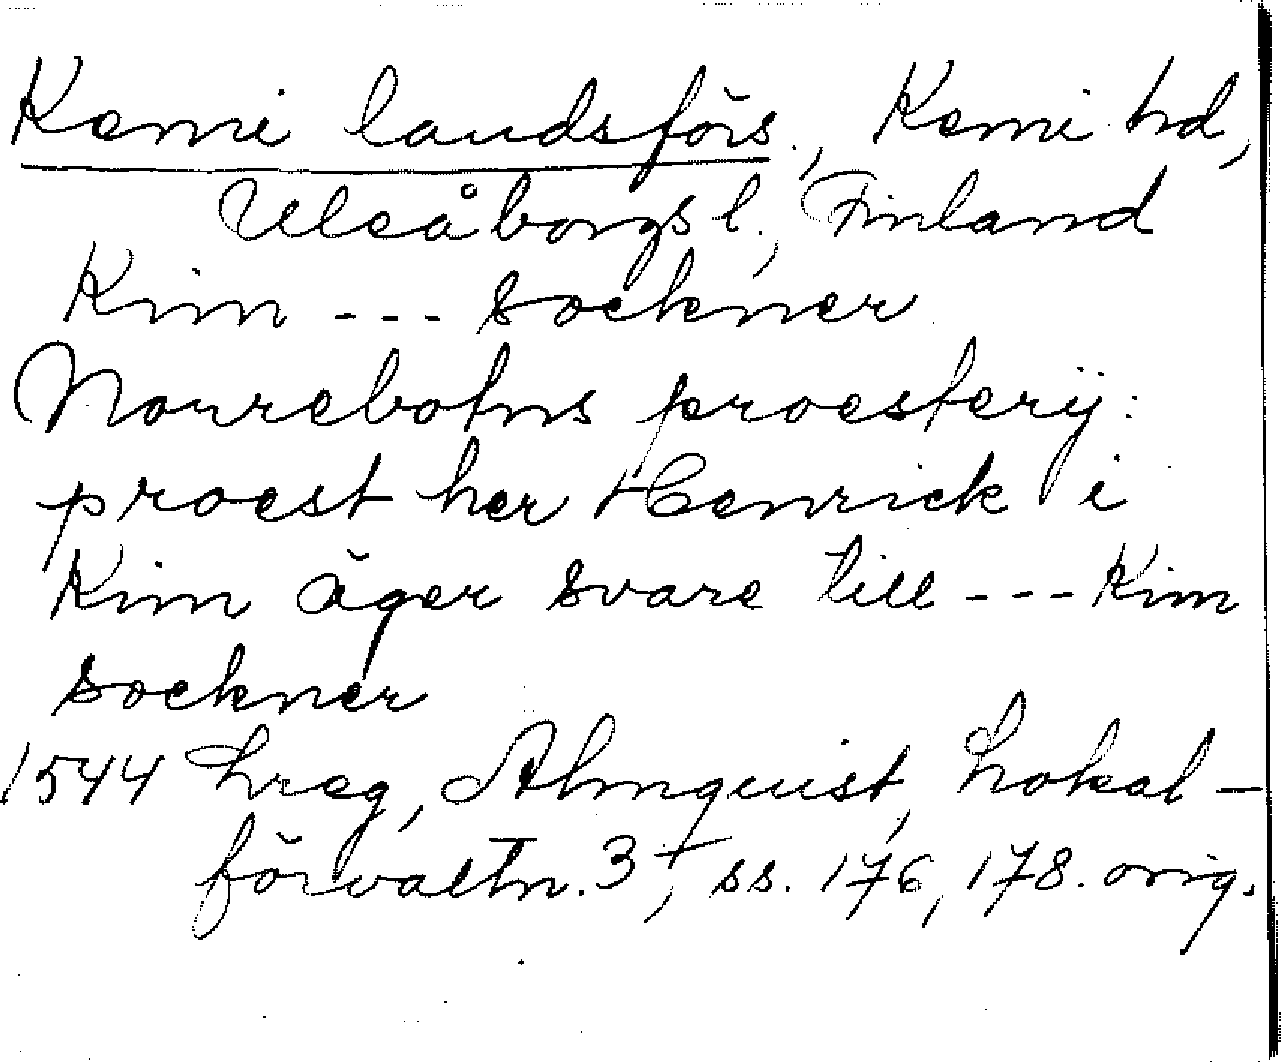 Kemi landsförs., Kemi hd,
Uleåborgs l., Finland
Kim --- sockner
Norrebotns proestery:
proest her Henrick i
Kim äger svare till --- Kim
sockner
1544 Lreg, Almquist, Lokal-
förvaltn. 3, ss. 176, 178. orig.